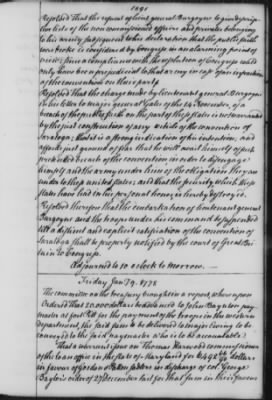 1691
Resolved That the refusal of lieut general Burgoyne to give descrip-
tive lists of the non commissioned officers and privates belonging
to his army subsequent to his declaration that the public faith
was broke is considered by Congress in an alarming point of
view; since a compliance with the resolution of Congress could
only have been prejudicial to that army in case of an infraction
of the convention on their part;
Resolved That the charge made by lieutenant general Burgoyne
in his letter to major general Gates of the 14 November, of a
breach of the public faith on the part of these states is not warranted
by the just construction of any article of the convention of
Saratoga; that it is a strong indication of his intention, and
affords just ground of fear that he will avail himself of such
pretended breach of the convention in order to disengage
himself and the army under him of the obligation they are
under to these united states; and that the security which these
states have had in his personal honor is hereby destroyed.
Resolved therefore that the embarkation of lieutenant general
Burgoyne and the troops under his command be suspended
till a distinct and explicit ratification of the convention of
Saratoga shall be properly notified by the court of Great Bri-
tain to Congress.
Adjourned to 10 o'clock to morrow.
Friday Jan 9. 1778
The committee on the treasury brought in a report, whereupon
Ordered that 20,000 dollars be advanced to John Boynton pay-
master at fort Pit for the payment of the troops in the western
department, the said sum to be delivered to major to be
conveyed to the said paymaster who is to be accountable:
That a warrant issue on Thomas Harwood commissioner
of the loan office in the state of Maryland for dollars
in favour of in discharge of col. George
Baylor's order of 29 December last for that sum in their favour